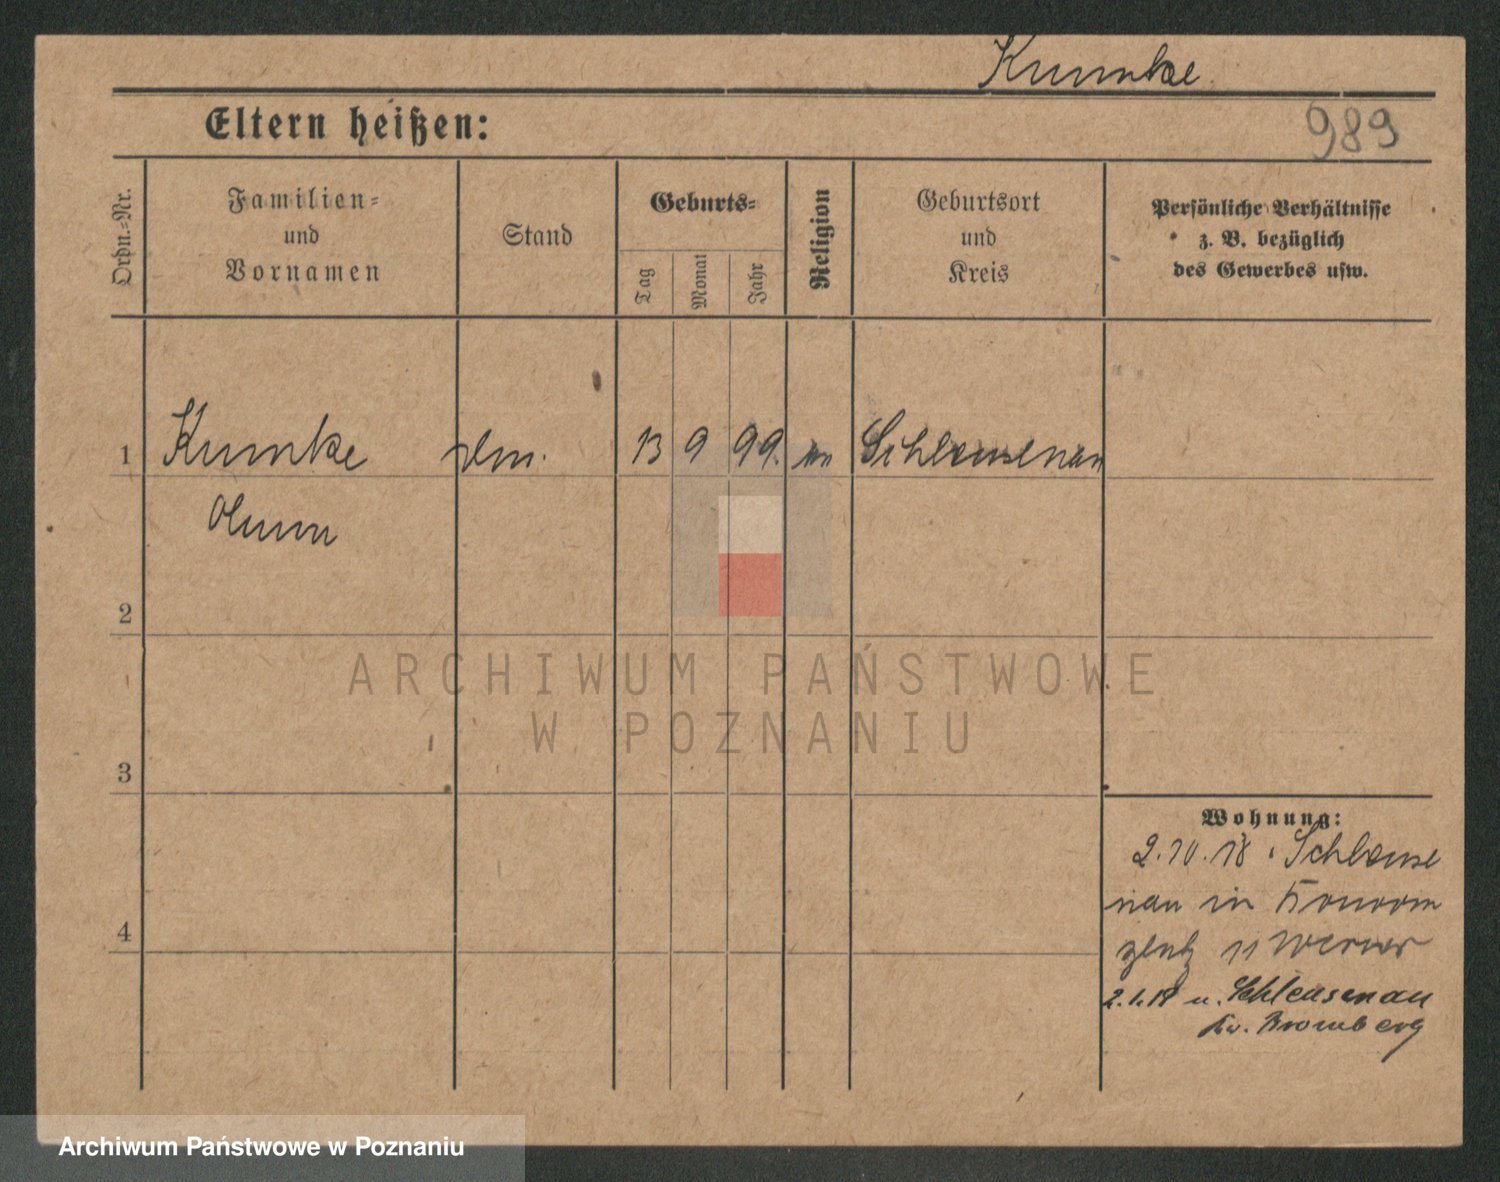 Kumke
989
Eltern heißen:
Ordn.-Nr.
Familien-
und
Vornamen
Stand
Geburts-
Tag
Monat
Jahr
Religion
Geburtsort
und
Kreis
Persönliche Verhältnisse
z. B. bezüglich
des Gewerbes usw.
1 Kumke 13 9 99. Schleusenau
2
3
4
ARCHIWUM PAŃSTWOWE
W POZNANIU
Wohnung:
2.10.18 Schleuse
nau in
2.1.19 n. Schleusenau
Kr. Bromberg
Archiwum Państwowe w Poznaniu